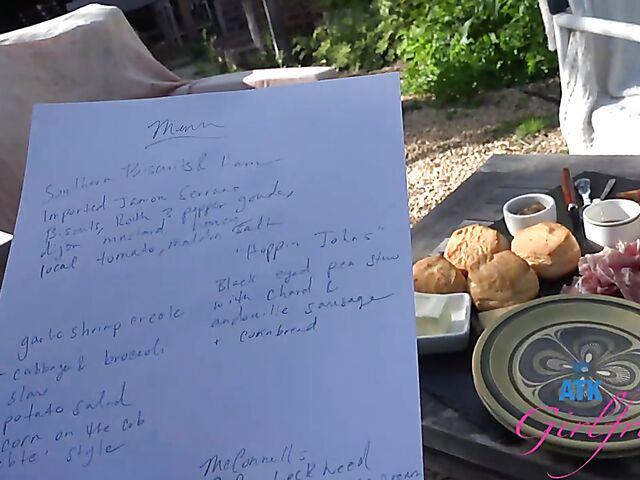 Menu
Southern Biscuits & Ham
Imported Jamon Serrano
Biscuits, 3 pepper gouda,
dijon mustard
local tomato, maldon salt
"Hoppin Johns"
Black eyed pea stew
with chard &
andouille sausage
+ cornbread
garlic shrimp creole
- cabbage & broccoli
slaw
potato salad
corn on the cob
style
McConnell's
ATK
Girlfri